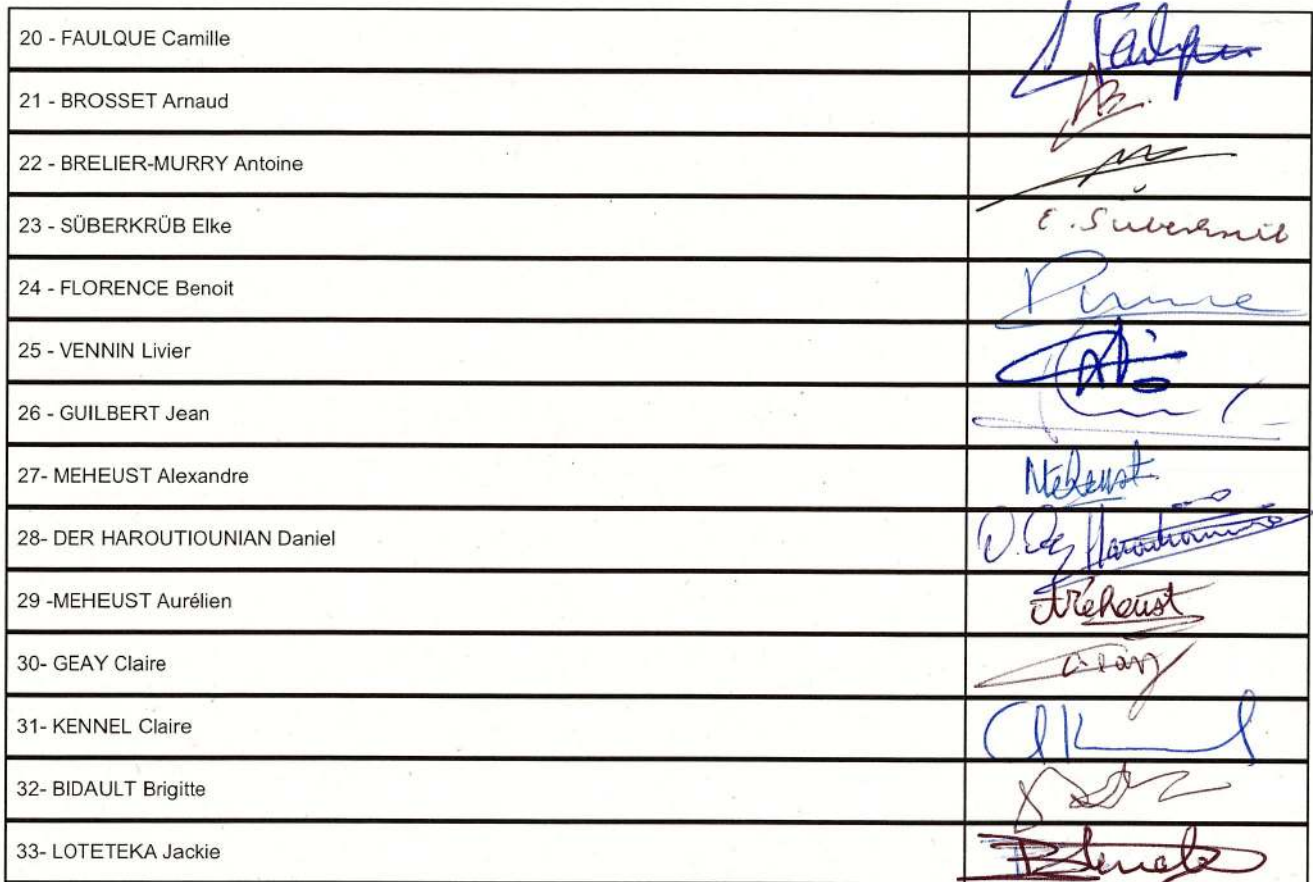 20 - FAULQUE Camille
21 - BROSSET Arnaud
22 - BRELIER-MURRY Antoine
23 - SÜBERKRÜB Elke E. Süberkrüb
24 - FLORENCE Benoit
25 - VENNIN Livier
26 - GUILBERT Jean
27- MEHEUST Alexandre Meheust
28- DER HAROUTIOUNIAN Daniel
29 -MEHEUST Aurélien Meheust
30- GEAY Claire
31- KENNEL Claire
32- BIDAULT Brigitte
33- LOTETEKA Jackie